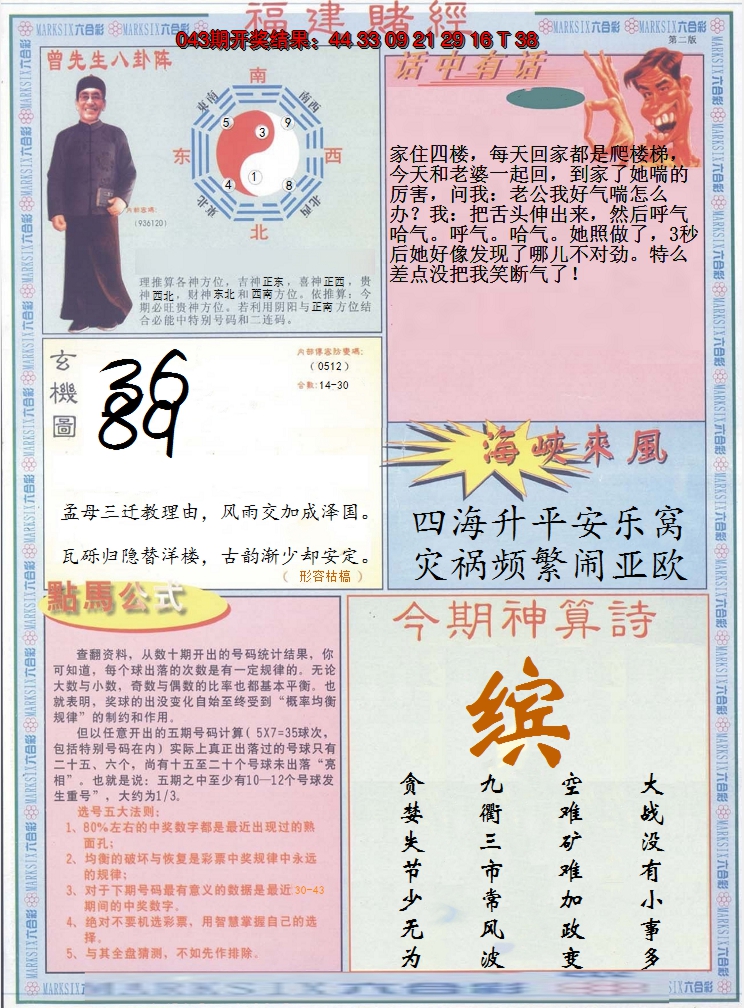 福建賭經
043期开奖结果：44 33 09 21 29 16 T 38
MARKSIX六合彩
第二版
曾先生八卦阵
南
东南
西南
5
9
3
东
西
1
4
8
东北
西北
北
内部密碼：
（936120）
理推算各神方位，吉神正东，喜神正西，贵
神西北，财神东北和西南方位。依推算：今
期必旺贵神方位。若利用阴阳与正南方位结
合必能中特别号码和二连码。
话中有话
家住四楼，每天回家都是爬楼梯，
今天和老婆一起回，到家了她喘的
厉害，问我：老公我好气喘怎么
办？我：把舌头伸出来，然后呼气
哈气。呼气。哈气。她照做了，3秒
后她好像发现了哪儿不对劲。特么
差点没把我笑断气了！
玄機圖
36
89
（0512）
合数:14-30
孟母三迁教理由，风雨交加成泽国。
瓦砾归隐替洋楼，古韵渐少却安定。
（ 形容枯槁 ）
海峽來風
四海升平安乐窝
灾祸频繁闹亚欧
點馬公式
查翻资料，从数十期开出的号码统计结果，你
可知道，每个球出落的次数是有一定规律的。无论
大数与小数，奇数与偶数的比率也都基本平衡。也
就表明，奖球的出没变化自始至终受到“概率均衡
规律”的制约和作用。
但以任意开出的五期号码计算（5X7=35球次，
包括特别号码在内）实际上真正出落过的号球只有
二十五、六个，尚有十五至二十个号球未出落“亮
相”。也就是说：五期之中至少有10—12个号球发
生重号”，大约为1/3。
选号五大法则：
1、80%左右的中奖数字都是最近出现过的熟
面孔；
2、均衡的破坏与恢复是彩票中奖规律中永远
的规律；
3、对于下期号码最有意义的数据是最近30-43
期间的中奖数字。
4、绝对不要机选彩票，用智慧掌握自己的选
择。
5、与其全盘猜测，不如先作排除。
今期神算詩
缤
大战没有小事多
空难矿难加政变
九衢三市常风波
贪婪失节少无为